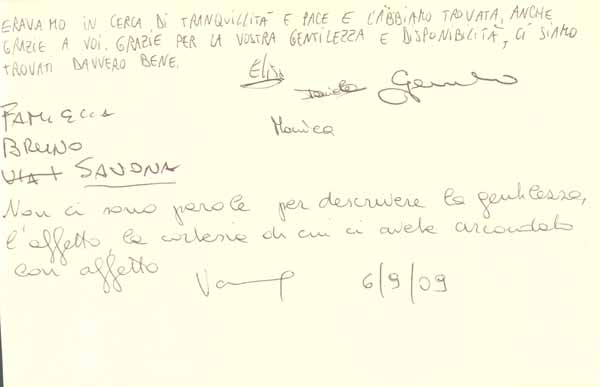 ERAVAMO IN CERCA DI TRANQUILLITÀ E PACE E L'ABBIAMO TROVATA, ANCHE
GRAZIE A VOI. GRAZIE PER LA VOSTRA GENTILEZZA E DISPONIBILITÀ, CI SIAMO
TROVATI DAVVERO BENE.
Elisa
Daniela
Monica
FAMIGLIA
BRUNO
SAVONA
Non ci sono parole per descrivere la gentilezza,
l'affetto, la cortesia di cui ci avete circondato
con affetto
6/9/09